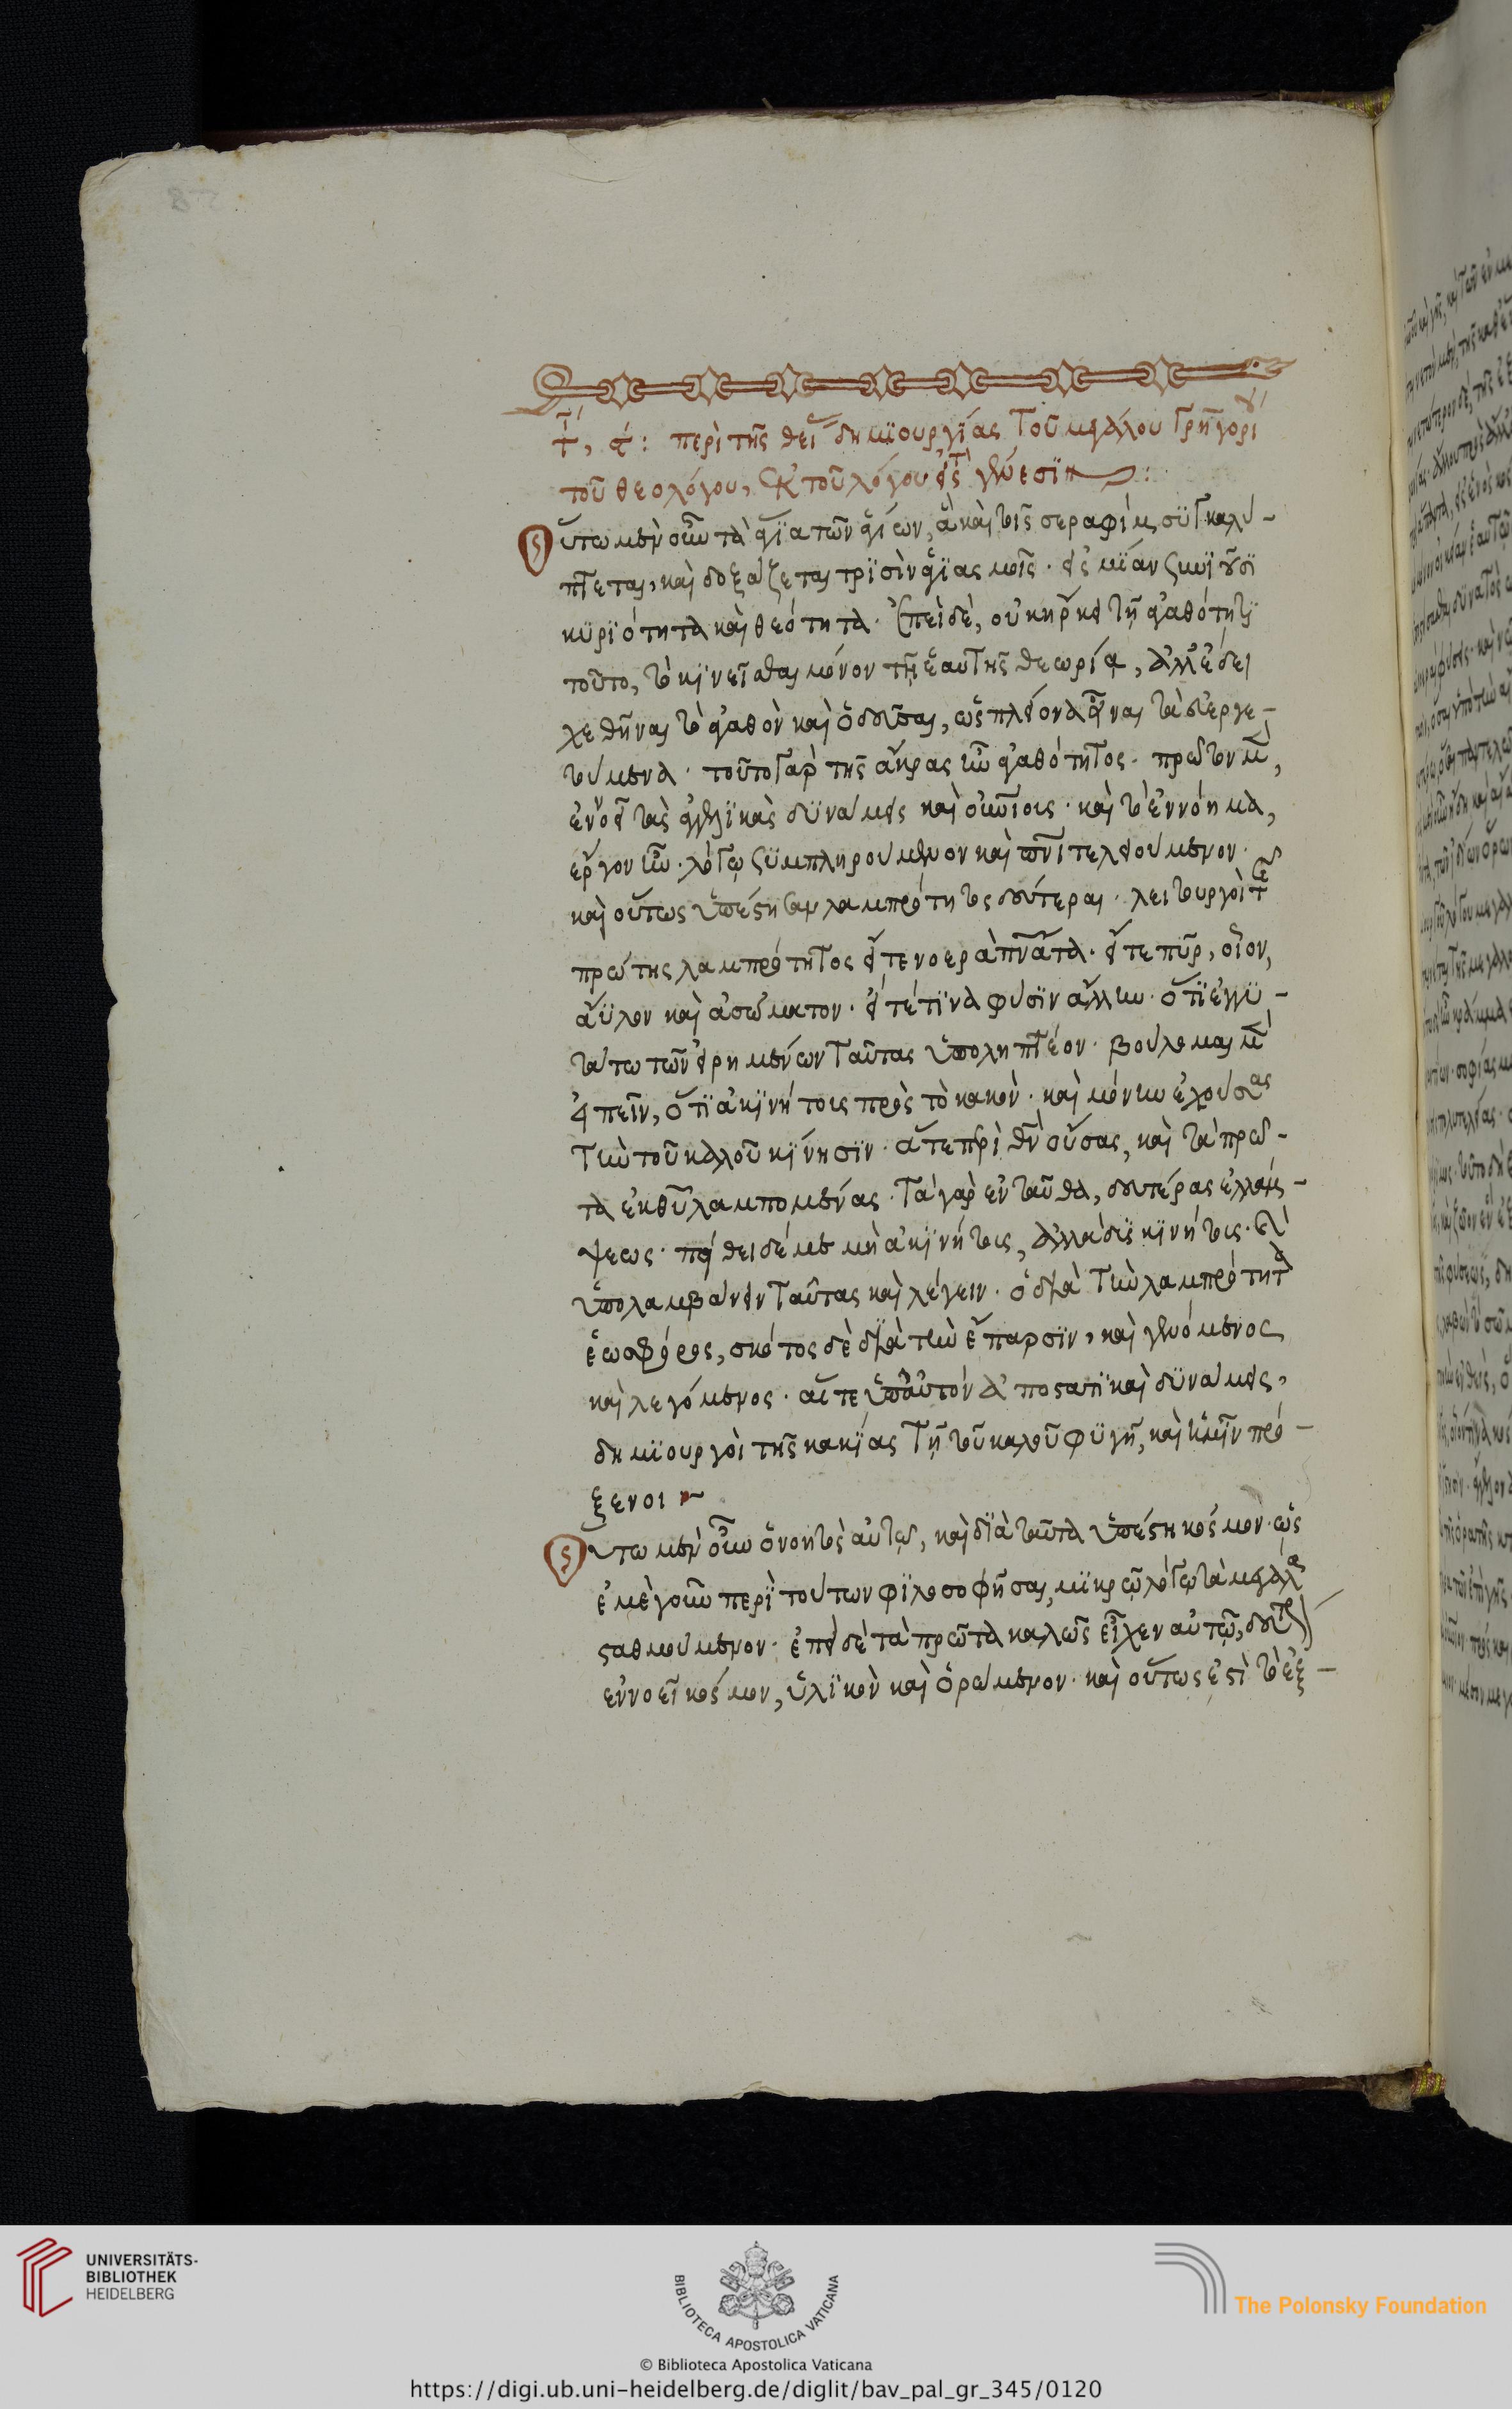 περὶ τῆς θείας δημϊουργΐας τοῦ μεγάλου Γρηγορίου
τοῦ θεολόγου, ἐκ τοῦ λόγου εἰς τ γένεσϊν:
οὕτω μὲν οὖν τὰ ἅγϊα τῶν ἁγίων, ἃ καὶ τοῖς σεραφὶμ συγκαλύ-
πτεται, καὶ δοξάζεται τρϊσὶν ἁγϊασμοῖς· εἰς μίαν συνϊοῦσϊ
κϋρϊότητα καὶ θεότητα· ἐπεὶ δὲ, οὐκ ἤρκει τῇ ἀγαθότητϊ
τοῦτο, τὸ κϊνεῖσθαι μόνον τῇ ἑαυτῆς θεωρίᾳ, ἀλλ' ἔδει
χεθῆναι τὸ ἀγαθὸν καὶ ὁδεῦσαι, ὡς πλείονα εἶναι τὰ εὐεργε-
τούμενα· τοῦτο γὰρ τῆς ἄκρας ἦν ἀγαθότητος· πρῶτον μὲν,
ἐννοεῖ τὰς ἀγγελϊκὰς δϋνάμεις καὶ οὐρανίους· καὶ τὸ ἐννόημα,
ἔργον ἦν· λόγῳ σϋμπληρούμενον καὶ πνεύματι τελειούμενον·
καὶ οὕτως ὑπέστησαν λαμπρότητες δεύτεραι· λειτουργοὶ τῆς
πρώτης λαμπρότητος εἴτε νοερὰ πνεύματα· εἴτε πῦρ, οἷον,
ἄϋλον καὶ ἀσώματον· εἴτέ τϊνα φύσϊν ἄλλην· ὅτϊ ἐγγϋ-
τάτω τῶν εἰρημένων ταύτας ὑποληπτέον· βούλομαι μὲν
εἰπεῖν, ὅτϊ ἀκϊνήτους πρὸς τὸ κακὸν· καὶ μόνην ἐχούσας
τὴν τοῦ καλοῦ κίνησϊν· ἅτε περὶ θεὸν οὔσας, καὶ τὰ πρῶ-
τα ἐκ θεοῦ λαμπομένας· τὰ γὰρ ἐνταῦθα, δευτέρας ἐλλάμ-
ψεως· πείθει δέ με μὴ ἀκϊνήτους, ἀλλὰ δυσκϊνήτους· καὶ
ὑπολαμβάνειν ταύτας καὶ λέγειν· ὁ δϊὰ τὴν λαμπρότητα
ἑωσφόρος, σκότος δὲ δϊὰ τὴν ἔπαρσϊν, καὶ γενόμενος
καὶ λεγόμενος· αἵ τε ὑπ' αὐτὸν ἀποστατϊκαὶ δϋνάμεις,
δημϊουργοὶ τῆς κακΐας τῇ τοῦ καλοῦ φϋγῇ, καὶ ἡμῖν πρό-
ξενοι
οὕτω μὲν οὖν ὁ νοητὸς αὐτῷ, καὶ δϊὰ ταῦτα ὑπέστη κόσμον· ὡς
ἐμὲ γοῦν περὶ τούτων φϊλοσοφῆσαι, μϊκρῷ λόγῳ τὰ μεγάλα
σταθμούμενον· ἐπεὶ δὲ τὰ πρῶτα καλῶς εἶχεν αὐτῷ, δεύτερον
ἐννοεῖ κόσμον, ὑλϊκὸν καὶ ὁρώμενον· καὶ οὕτως ἐστὶ τὸ ἐξ-
UNIVERSITÄTS-
BIBLIOTHEK
HEIDELBERG
BIBLIOTECA APOSTOLICA VATICANA
The Polonsky Foundation
© Biblioteca Apostolica Vaticana
https://digi.ub.uni-heidelberg.de/diglit/bav_pal_gr_345/0120